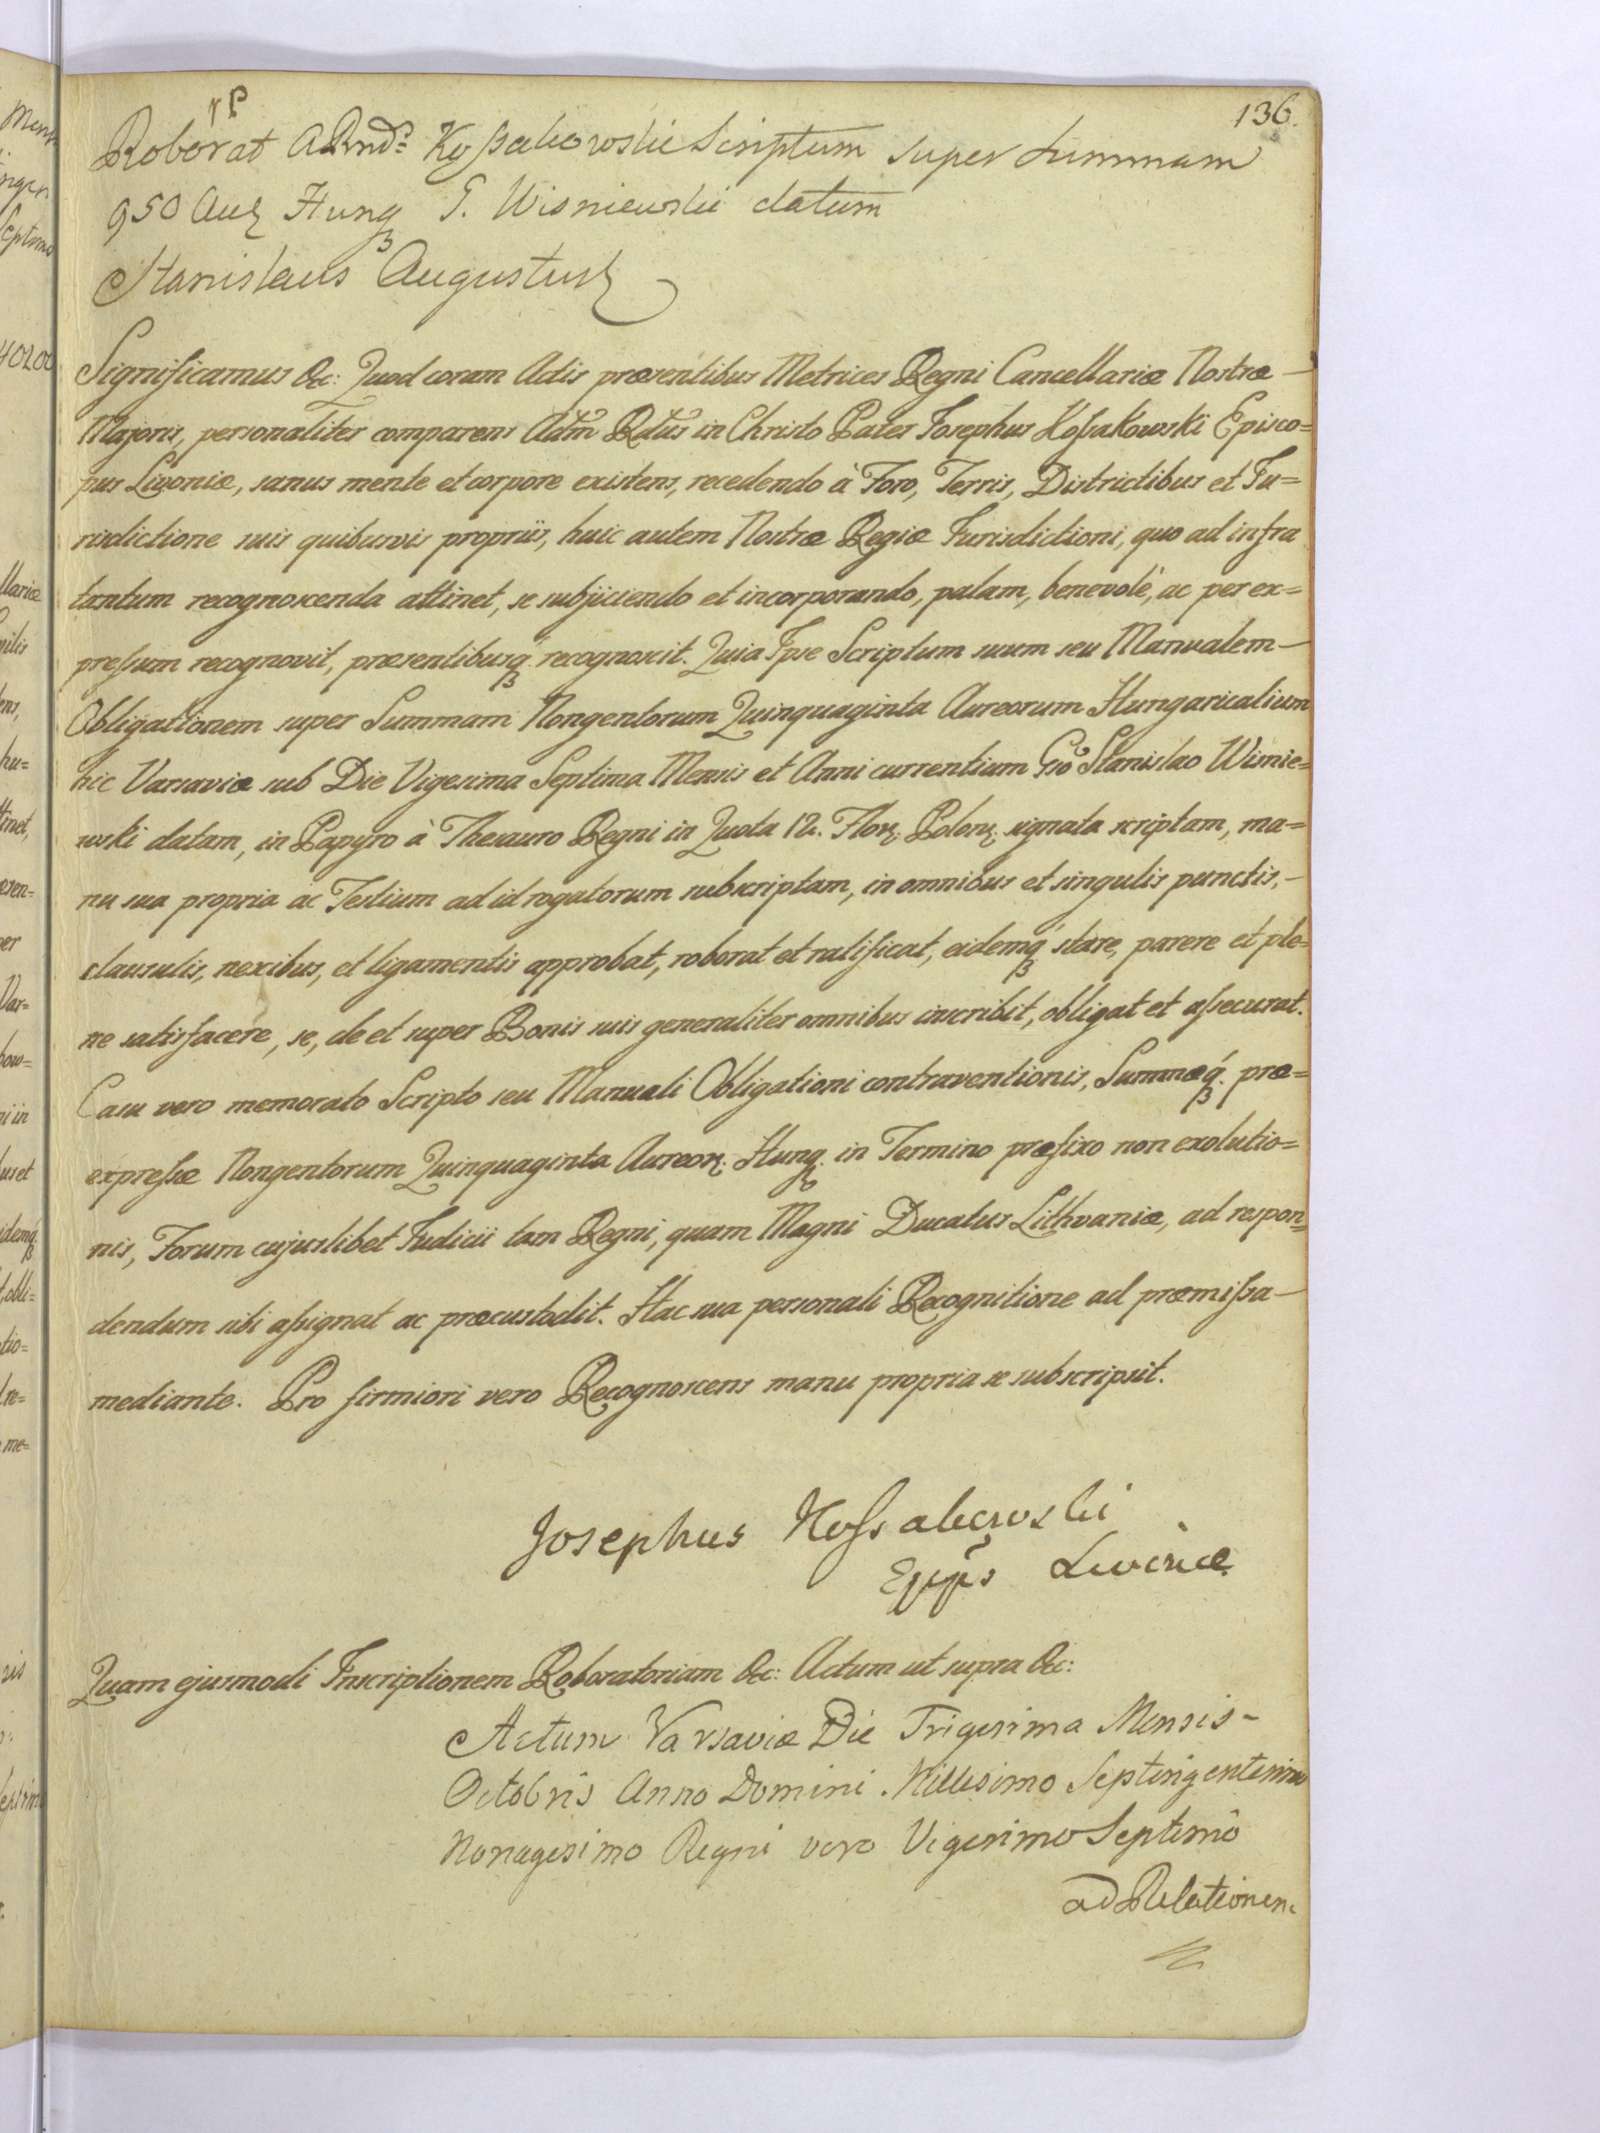 136.
Roborat ARnds Kossakowski Scriptum super Summam
950 Aur Hung G. Wisniewski datum
Stanislaus Augustus
Significamus &c: Quod coram Actis præsentibus Metrices Regni Cancellariæ Nostræ –
Majoris, personaliter comparens Adm Rdus in Christo Pater Josephus Kossakowski Episco=
pus Livoniæ, sanus mente et corpore existens, recedendo à Foro, Terris, Districtibus et Ju=
risdictione suis quibusvis propriis, huic autem Nostræ Regiæ Jurisdictioni, quo ad infra
tantum recognoscenda attinet, se subjiciendo et incorporando, palam, benevolè, ac per ex=
pressum recognovit, præsentibusq recognoscit. Quia Ipse Scriptum suum seu Manualem –
Obligationem super Summam Nongentorum Quinquaginta Aureorum Hungaricalium
hic Varsaviæ sub Die Vigesima Septima Mensis et Anni currentium Gso Stanislao Wisnie=
wski datam, in Papyro à Thesauro Regni in Quota 12. Flor. Polon. signata scriptam, ma=
nu sua propria ac Testium ad id rogatorum subscriptam, in omnibus et singulis punctis, –
clausulis, nexibus, et ligamentis approbat, roborat et ratificat, eidemq stare, parere et ple=
ne satisfacere, se, de et super Bonis suis generaliter omnibus inscribit, obligat et assecurat.
Casu vero memorato Scripto seu Manuali Obligationi contraventionis, Summæq. præ=
expressæ Nongentorum Quinquaginta Aureor. Hung. in Termino præfixo non exolutio=
nis, Forum cujuslibet Judicii tam Regni, quam Magni Ducatus Lithvaniæ, ad respon=
dendum sibi assignat ac præcustodit. Hac sua personali Recognitione ad præmissa –
mediante. Pro firmiori vero Recognoscens manu propria se subscripsit.
Josephus Kossakowski
Eppus Livoniæ
Quam ejusmodi Inscriptionem Roboratoriam &c: Actum ut supra &c:
Actum Varsaviæ Die Trigesima Mensis –
Octobris Anno Domini Millesimo Septingentesimo
Nonagesimo Regni vero Vigesimo Septimo
ad Relationem